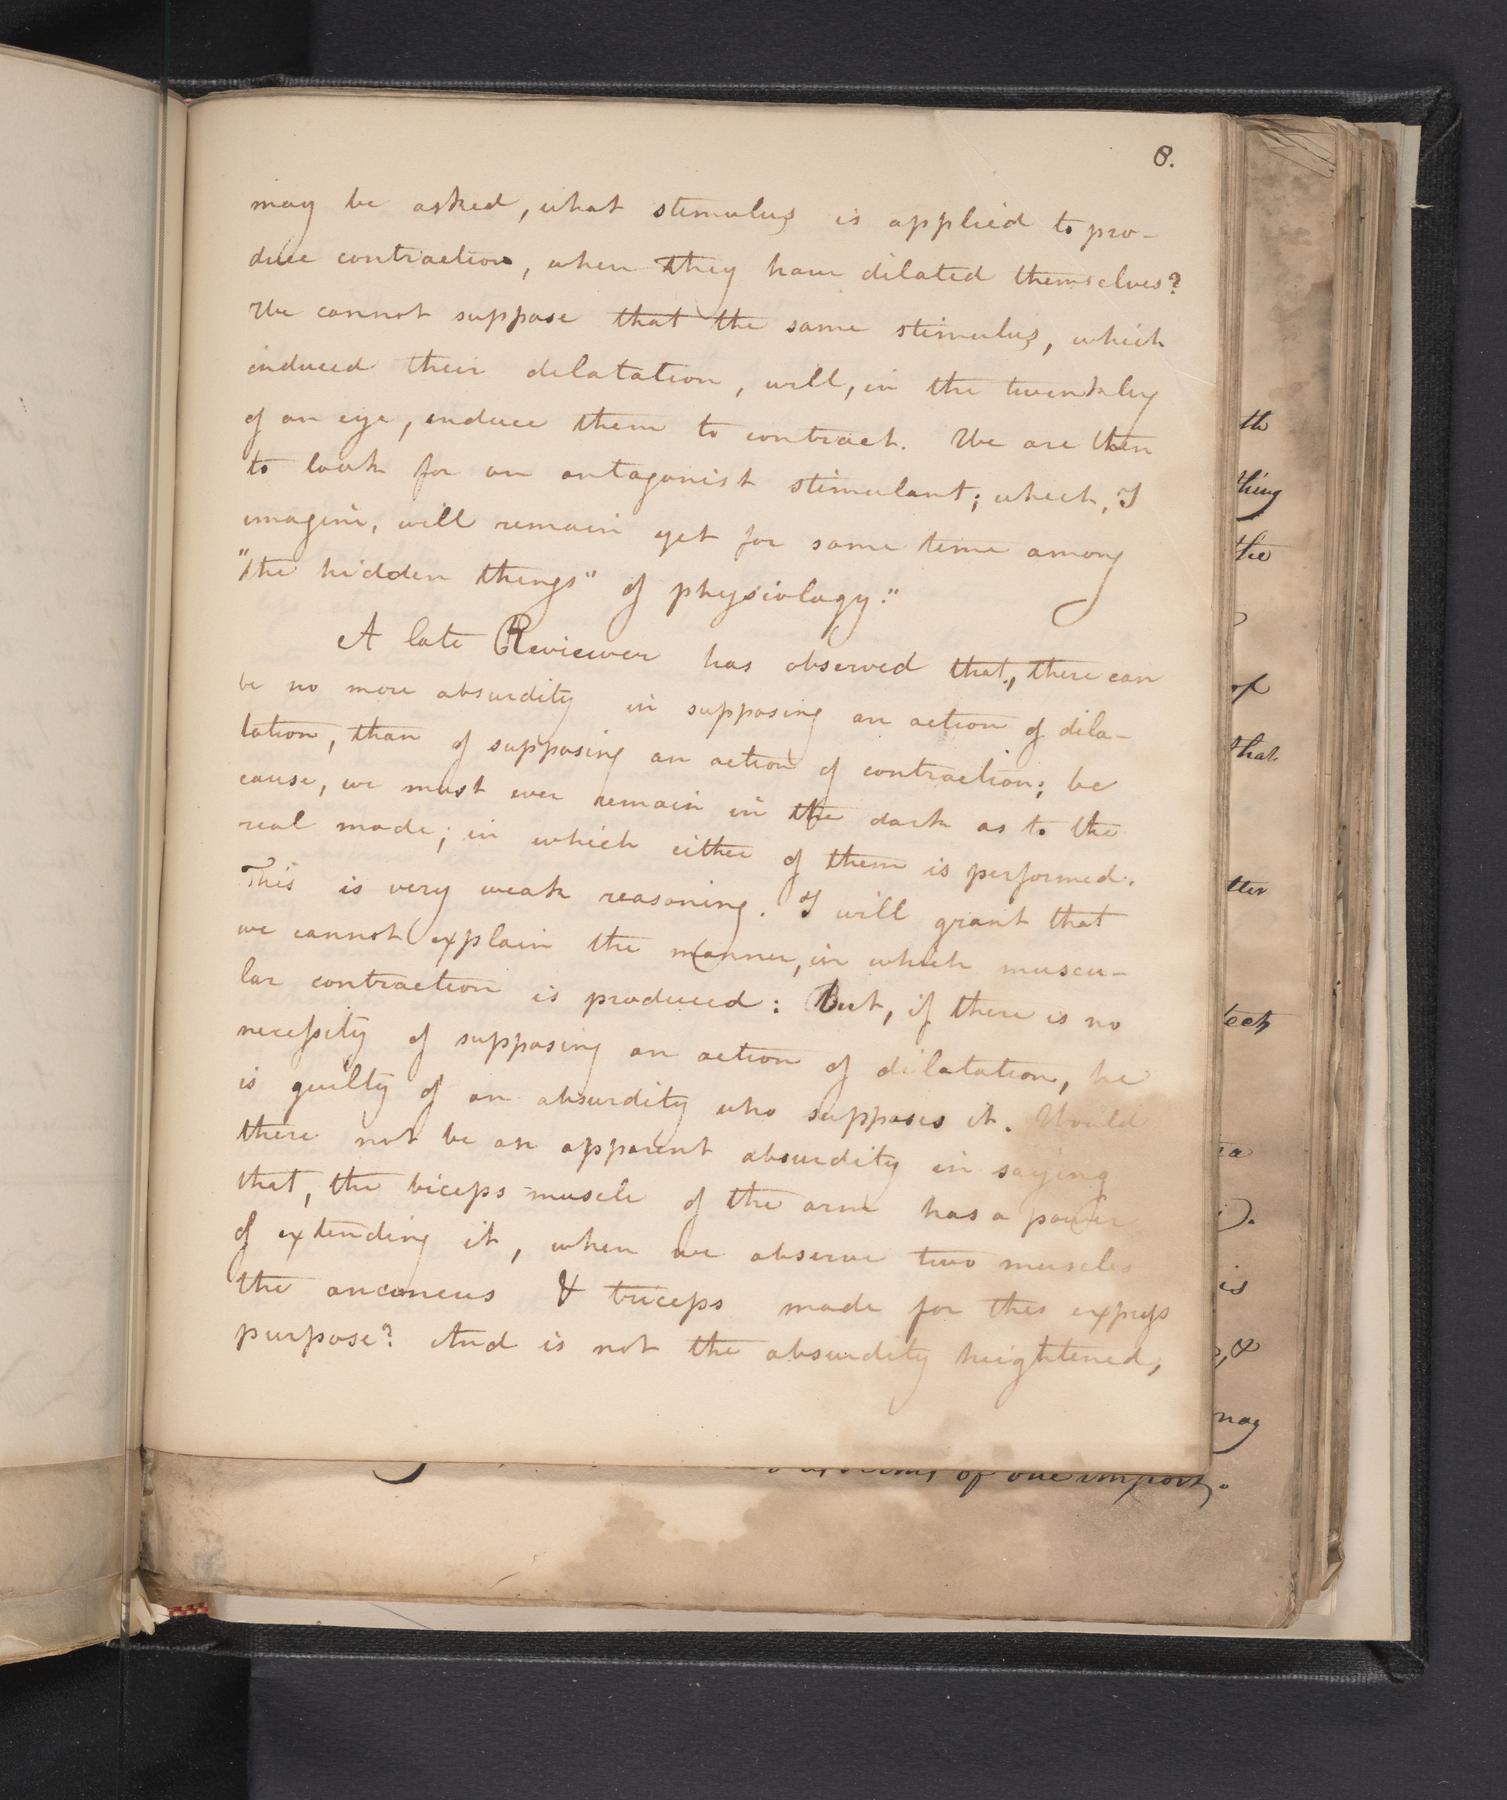 8.
may be asked, what stimulus is applied to pro-
duce contraction, when they have dilated themselves?
We cannot suppose that the same stimulus, which
induced their dilatation, will, in the twinkling
of an eye, induce them to contract. We are then
to look for an antagonist stimulant; which, I
imagine, will remain yet for some time among
"the hidden things" of physiology."
A late Reviewer has observed that, there can
be no more absurdity in supposing an action of dila-
tation, than of supposing an action of contraction; be
cause, we must ever remain in the dark as to the
real mode; in which either of them is performed.
This is very weak reasoning. I will grant that
we cannot explain the manner, in which muscu-
lar contraction is produced: But, if there is no
necessity of supposing an action of dilatation, he
is guilty of an absurdity who supposes it. Would
there not be an apparent absurdity in saying
that, the biceps-muscle of the arm has a power
of extending it, when we observe two muscles
the anconeus & triceps made for this express
purpose? And is not the absurdity heightened,
th
thing
the
of
that
tter
is
may
of one import.